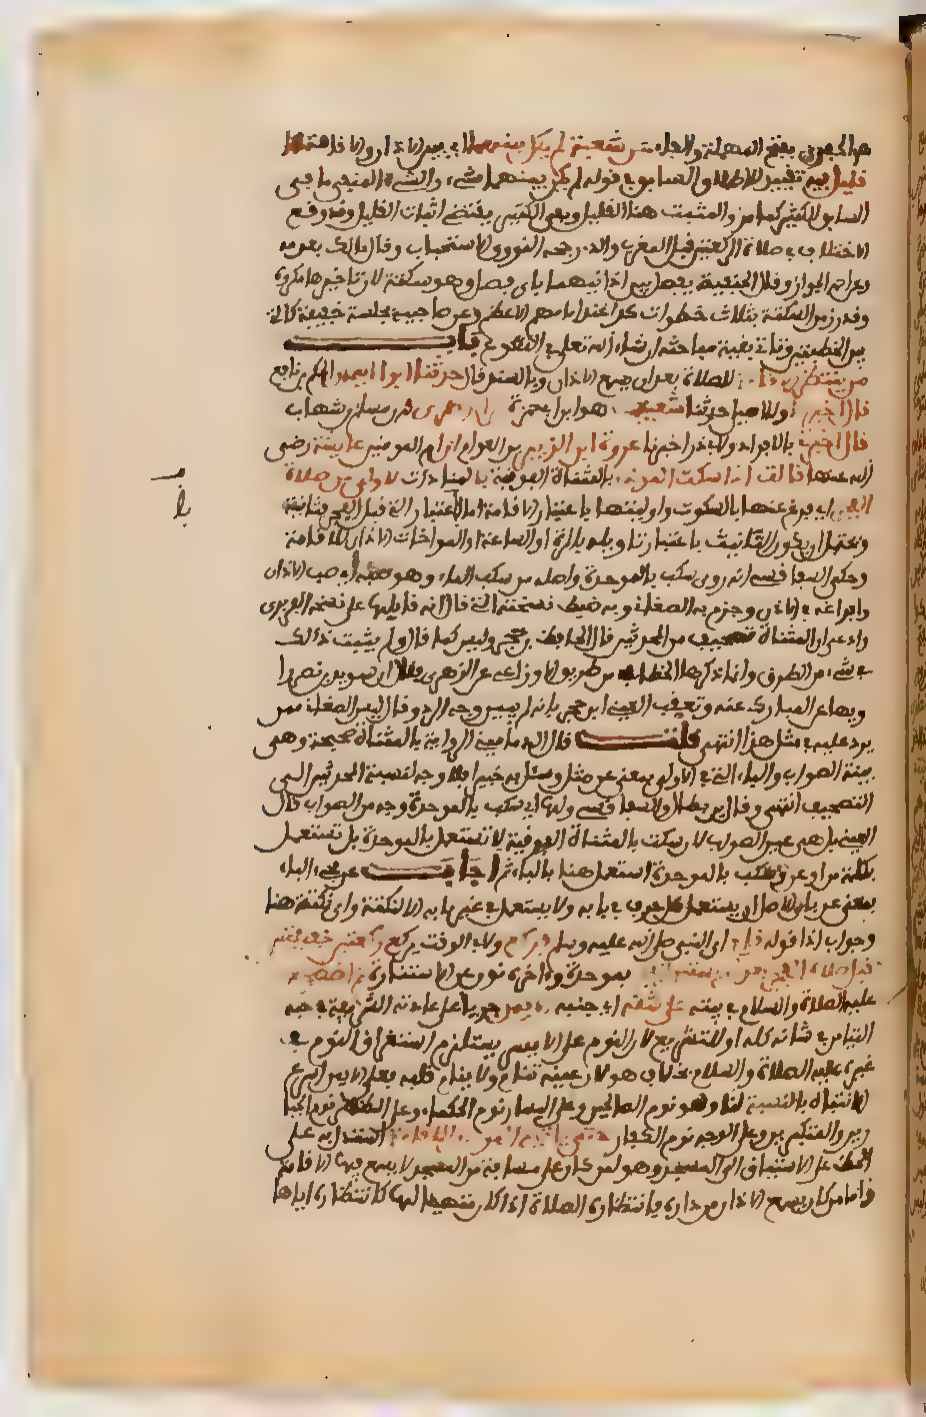 هو الحفري بفتح المهملة والفاء عن شعبة لم يكن بينهما اي بين الاذان والاقامة الا
قليل فيه تقييد للاطلاق السابق في قوله لم يكن بينهما شيء والشيء المنفي ما في
السابق الكثير كما مر والمثبت هنا القليل ونفي الكثير يقتضي اثبات القليل وقد وقع
الاختلاف في صلاة الركعتين قبل المغرب والذي رجحه النووي الاستحباب وقال مالك بعدمه
وعن احمد الجواز وقال الحنفية يفصل بين اذانيهما بادنى فصل وهو سكتة لان تاخيرها مكروه
وقدر زمن السكتة بثلاث خطوات كذا عند امامهم الاعظم وعن صاحبيه بجلسة خفيفة كالتي
بين الخطبتين وتاتي بقية مباحثه ان شاء الله تعلى في التطوع باب
من ينتظر الاقامة للصلاة بعد ان يسمع الاذان وبالسند قال حدثنا ابو اليمان الحكم بن نافع
قال اخبرنا وللاصيلي حدثنا شعيب هو ابن ابي حمزة عن الزهري محمد بن مسلم بن شهاب
قال اخبرني بالافراد ولابي ذر اخبرنا عروة ابن الزبير بن العوام ان ام المومنين عايشة رضي
الله عنها قالت اذا سكت المؤذن بالمثناة الفوقية بالمناداة الاولى من صلاة
الفجر اي فرغ عنها بالسكوت واوليتها باعتبار الاقامة اما باعتبار التي قبل الفجر فثانية
ويحتمل ان يكون التانيث باعتبار تاويله بالمرة او الساعة او لمواخات الاذان للاقامة
وحكى السفاقسي انه روي سكب بالموحدة واصله من سكب الماء وهو صبه اي صب الاذان
وافراغه في الاذن وجزم به الصغاني وبه ضبط نسخته التي قال انه قابلها على نسخة الفربري
وادعى ان المثناة تصحيف من المحدثين قال الحافظ ابن حجر وليس كما قال ولم يثبت ذالك
في شيء من الطرق وانما ذكرها الخطابي من طريق الاوزاعي عن الزهري وقال ان سويد بن نصر را
ويها عن المبارك عنه وتعقب العيني ابن حجر بانه لم يبين وجه الرد وقال ليس الصغاني ممن
يرد عليه في مثل هذا انتهى قلت قال الدماميني الرواية بالمثناة صحيحة وهي
بينة الصواب والباء التي في الاولى بمعنى عن مثل وسئل به خبيرا فلا وجه لنسبة المحدثين الى
التصحيف انتهى وقال ابن بطال والسفاقسي ولها اي سكب بالموحدة وجه من الصواب قال
العيني بل هي عين الصواب لان سكت بالمثناة الفوقية لا تستعمل بالموحدة بل تستعمل
بكلمة من او عن وسكب بالموحدة استعمل هنا بالباء ثم اجاب عن مجيء الباء
بمعنى عن بان الاصل ان يستعمل كل حرف في بابه ولا يستعمل في غير بابه الا لنكتة واي نكتة هنا
وجواب اذا قوله قام اي النبي صلى الله عليه وسلم فركع ولابي الوقت يركع ركعتين خفيفتين
قبل صلاة الفجر بعد ان يستنير بموحدة واخره نون عن الاستنارة ثم اضطجع
عليه الصلاة والسلام في بيته على شقه اي جنبه الايمن جريا على عادته الشريفة في حبه
التيامن في شانه كله او للتشريع لان النوم على الايسر يستلزم استغراق النوم في
غيره عليه الصلاة والسلام بخلافه هو لان عينه تنام ولا ينام قلبه فعلى الايمن اسرع
الانتباه بالنسبة لنا وهو نوم الصالحين وعلى اليسار نوم الحكماء وعلى الظهر نوم الجبا
رين والمتكبرين وعلى الوجه نوم الكفار حتى ياتيه المؤذن للاقامة استدل به على
الحث على الاستباق الى المسجد وهو لمن كان على مسافة من المسجد لا يسمع فيها الاقامة
واما من كان يسمع الاذان من داره فانتظاره الصلاة اذا كان متهيئا لها كانتظاره اياها